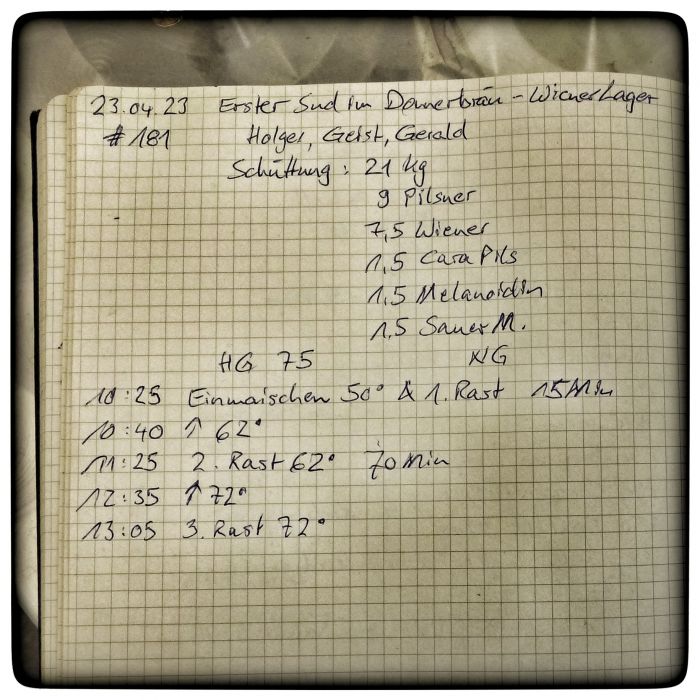 23.04.23 Erster Sud im Donnerbräu - Wiener Lager
#181 Holger, Geist, Gerald
Schüttung: 21 kg
9 Pilsner
7,5 Wiener
1,5 Cara Pils
1,5 Melanoidin
1,5 Sauer M.
HG 75 NG
10:25 Einmaischen 50° & 1. Rast 15 Min
10:40 ↑ 62°
11:25 2. Rast 62° 70 Min
12:35 ↑ 72°
13:05 3. Rast 72°